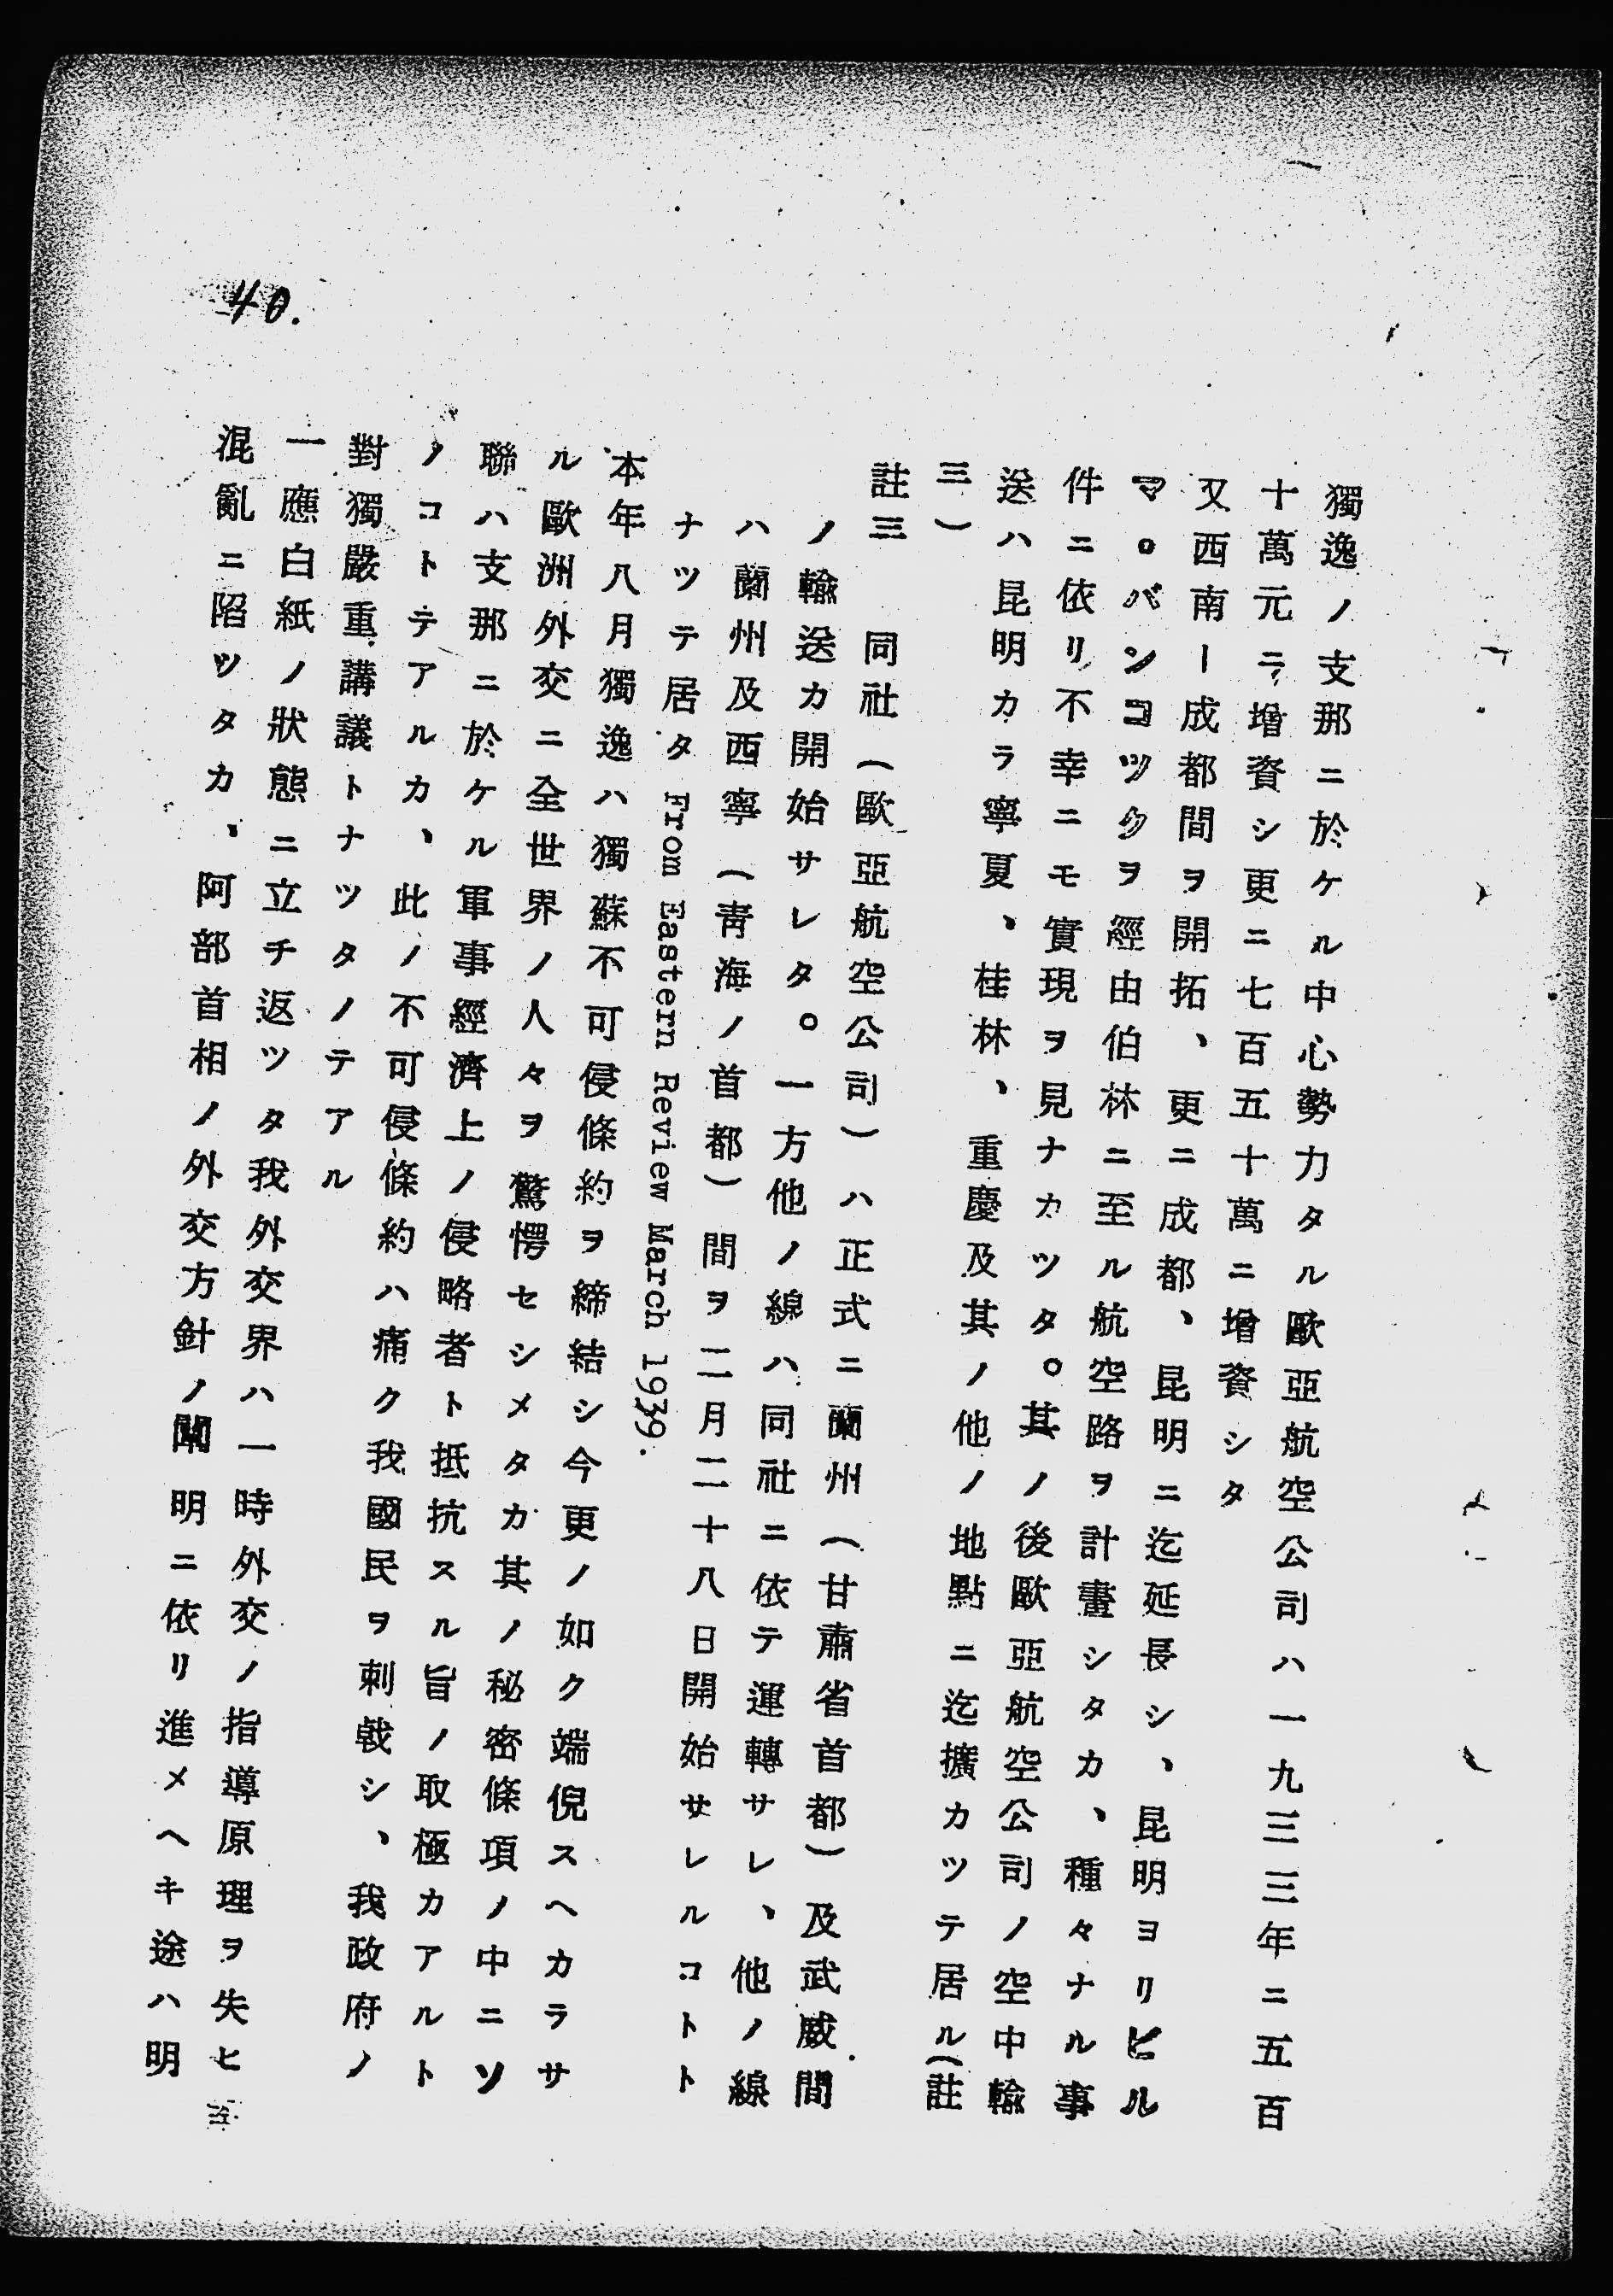 40.
獨逸ノ支那ニ於ケル中心勢力タル歐亞航空公司ハ一九三三年ニ五百
十萬元ニ增資シ更ニ七百五十萬ニ增資シタ
又西南ー成都間ヲ開拓、更ニ成都、昆明ニ迄延長シ、昆明ヨリビル
マ。バンコツクヲ經由伯林ニ至ル航空路ヲ計畫シタカ、種々ナル事
件ニ依リ不幸ニモ實現ヲ見ナカツタ。其ノ後歐亞航空公司ノ空中輸
送ハ昆明カラ寧夏、桂林、重慶及其ノ他ノ地點ニ迄擴カツテ居ル(註
三)
註三 同社(歐亞航空公司)ハ正式ニ蘭州(甘肅省首都)及武威間
ノ輸送カ開始サレタ。一方他ノ線ハ同社ニ依テ運轉サレ、他ノ線
ハ蘭州及西寧(靑海ノ首都)間ヲ二月二十八日開始サレルコトト
ナツテ居タ From Eastern Review March 1939.
本年八月獨逸ハ獨蘇不可侵條約ヲ締結シ今更ノ如ク端倪スヘカラサ
ル歐洲外交ニ全世界ノ人々ヲ驚愕セシメタカ其ノ秘密條項ノ中ニソ
聯ハ支那ニ於ケル軍事經濟上ノ侵略者ト抵抗スル旨ノ取極カアルト
ノコトテアルカ、此ノ不可侵條約ハ痛ク我國民ヲ刺戟シ、我政府ノ
對獨嚴重講議トナツタノテアル
一應白紙ノ狀態ニ立チ返ツタ我外交界ハ一時外交ノ指導原理ヲ失ヒ
混亂ニ陷ツタカ、阿部首相ノ外交方針ノ闡明ニ依リ進メヘキ途ハ明